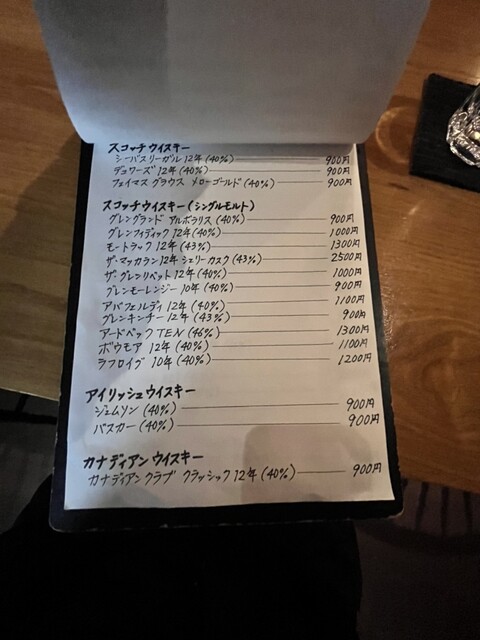 スコッチウイスキー
シーバスリーガル 12年 (40%) 900円
デュワーズ 12年 (40%) 900円
フェイマス グラウス メローゴールド (40%) 900円
スコッチウイスキー (シングルモルト)
グレングラント アルボラリス (40%) 900円
グレンフィディック 12年 (40%) 1000円
モートラック 12年 (43%) 1300円
ザ・マッカラン 12年 シェリーカスク (43%) 2500円
ザ・グレンリベット 12年 (40%) 1000円
グレンモーレンジー 10年 (40%) 900円
アバフェルディ 12年 (40%) 1100円
グレンキンチー 12年 (43%) 900円
アードベック TEN (46%) 1300円
ボウモア 12年 (40%) 1100円
ラフロイグ 10年 (40%) 1200円
アイリッシュウイスキー
ジェムソン (40%) 900円
バスカー (40%) 900円
カナディアンウイスキー
カナディアンクラブ クラッシック 12年 (40%) 900円